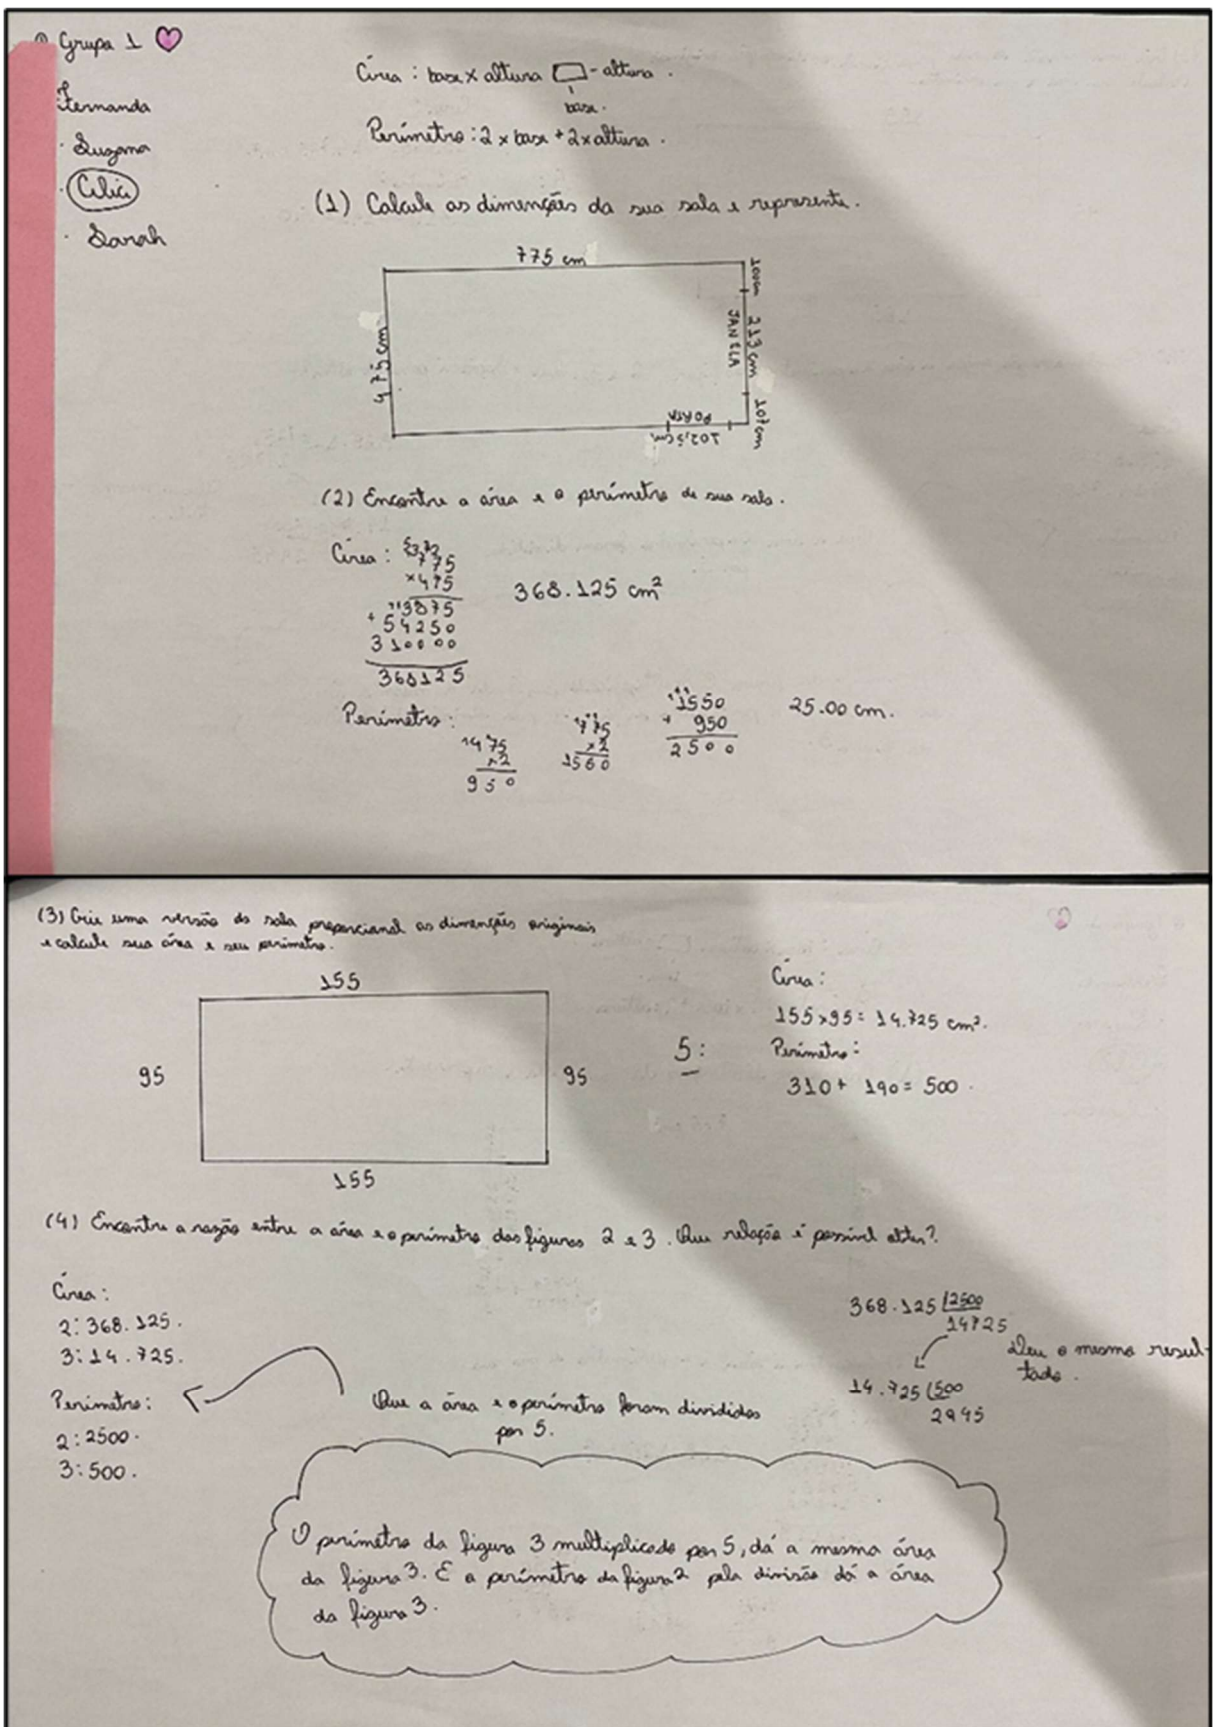 Grupo 1
Fernanda
Suzana
Sarah
Área: base x altura - altura.
base.
Perímetro: 2 x base + 2 x altura.
(1) Calcule as dimenções da sua sala e represente.
775 cm
475 cm
100cm
JANELA
213 cm
107cm
PORTA
102,5cm
(2) Encontre a área e o perímetro de sua sala.
Área:
775
x475
3875
+ 54250
310000
368125
368.125 cm²
Perímetro:
475
x2
950
775
x2
1550
1550
+ 950
2500
25.00 cm.
(3) Crie uma versão da sala proporcional as dimenções originais
e calcule sua área e seu perímetro.
155
95
95
155
5:
Área:
155x95= 14.725 cm².
Perímetro:
310+ 190= 500.
(4) Encontre a razão entre a área e o perímetro das figuras 2 e 3. Que relação é possível obter?
Área:
2: 368.125.
3: 14.725.
Perímetro:
2: 2500.
3: 500.
Que a área e o perímetro foram divididos
por 5.
368.125 2500
14725
Deu o mesmo resul-
tado.
14.725 500
2945
O perímetro da figura 3 multiplicado por 5, dá a mesma área
da figura 3. E o perímetro da figura 2 pela divisão dá a área
da figura 3.